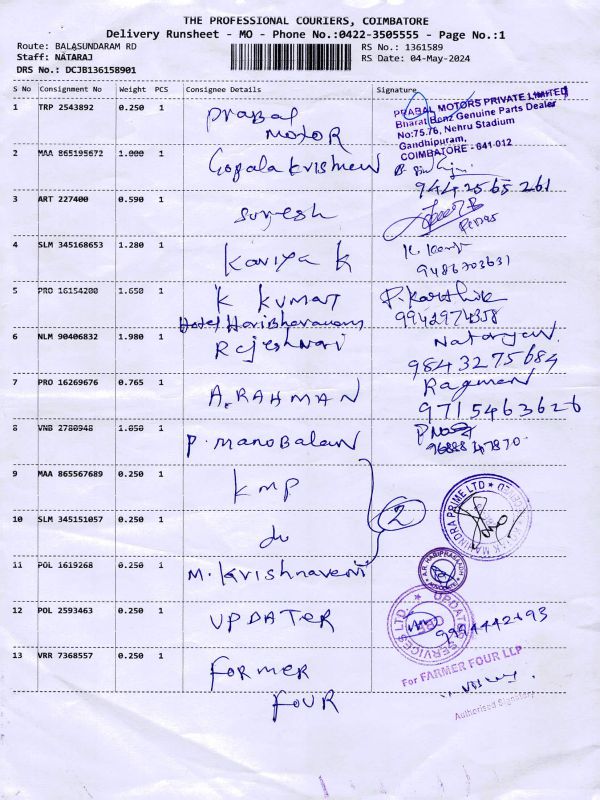 THE PROFESSIONAL COURIERS, COIMBATORE
Delivery Runsheet - MO - Phone No.:0422-3505555 - Page No.:1
Route: BALASUNDARAM RD
Staff: NATARAJ
DRS No.: DCJB136158901
RS No.: 1361589
RS Date: 04-May-2024
S No Consignment No Weight PCS Consignee Details Signature
1 TRP 2543892 0.250 1 Prabal
MOTOR
PRABAL MOTORS PRIVATE LIMITED
Bharat Benz Genuine Parts Dealer
No:75,76, Nehru Stadium
Gandhipuram,
COIMBATORE - 641 012
2 MAA 865195672 1.000 1 Gopala Krishnan
9442565261
3 ART 227400 0.590 1 Suresh
4 SLM 345168653 1.280 1 Kaviya K
9486703631
5 PRO 16154200 1.650 1 K Kumar P. Karthik
Hotel Haribhavanam 9942974358
6 NLM 90406832 1.980 1 Rajeshwari Natarajan
9843275684
7 PRO 16269676 0.765 1 A. RAHMAN Ragman
9715463626
8 VNB 2780948 1.050 1 P. Manobalan
9 MAA 865567689 0.250 1 KMP
2
10 SLM 345151057 0.250 1 do
11 POL 1619268 0.250 1 M. Krishnaveni
A.R. HARIPRASADH
ADVOCATE
12 POL 2593463 0.250 1 UPDATER
UPDATER SERVICES LTD.
13 VRR 7368557 0.250 1 FORMER
FOUR
For FARMER FOUR LLP
Authorised Signatory